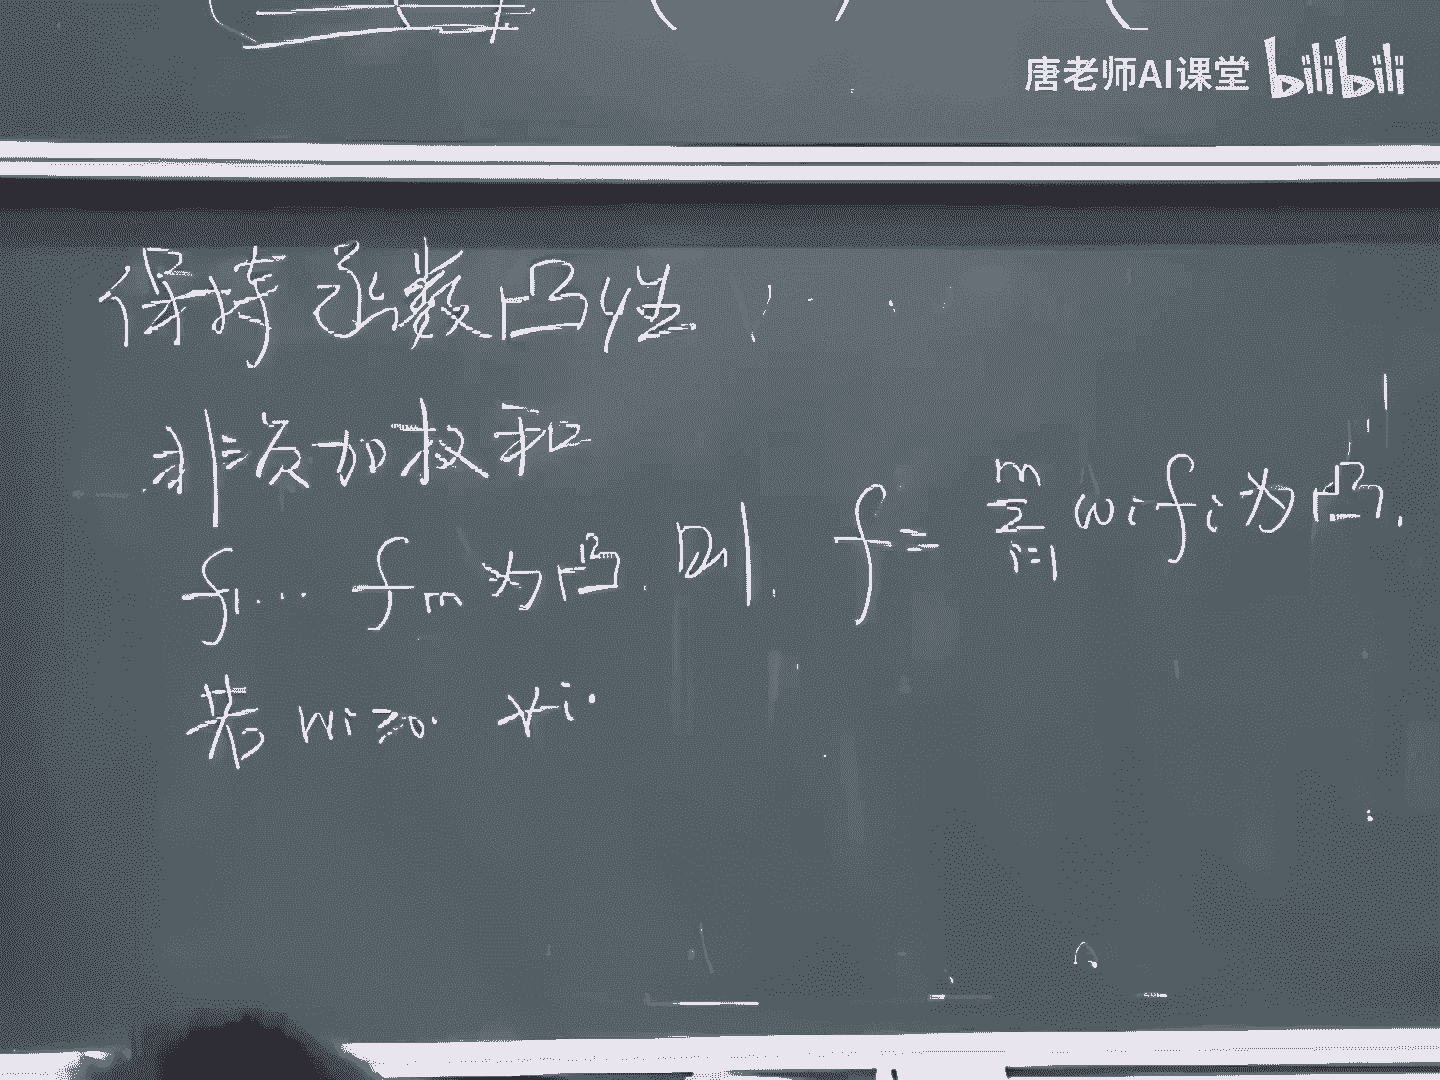 唐老师AI课堂 bilibili
保持函数凸性
非负加权和
f₁... fₘ为凸. 则. f = ∑_{i=1}^{m} wᵢfᵢ为凸.
若 wi≥0. ∀i.